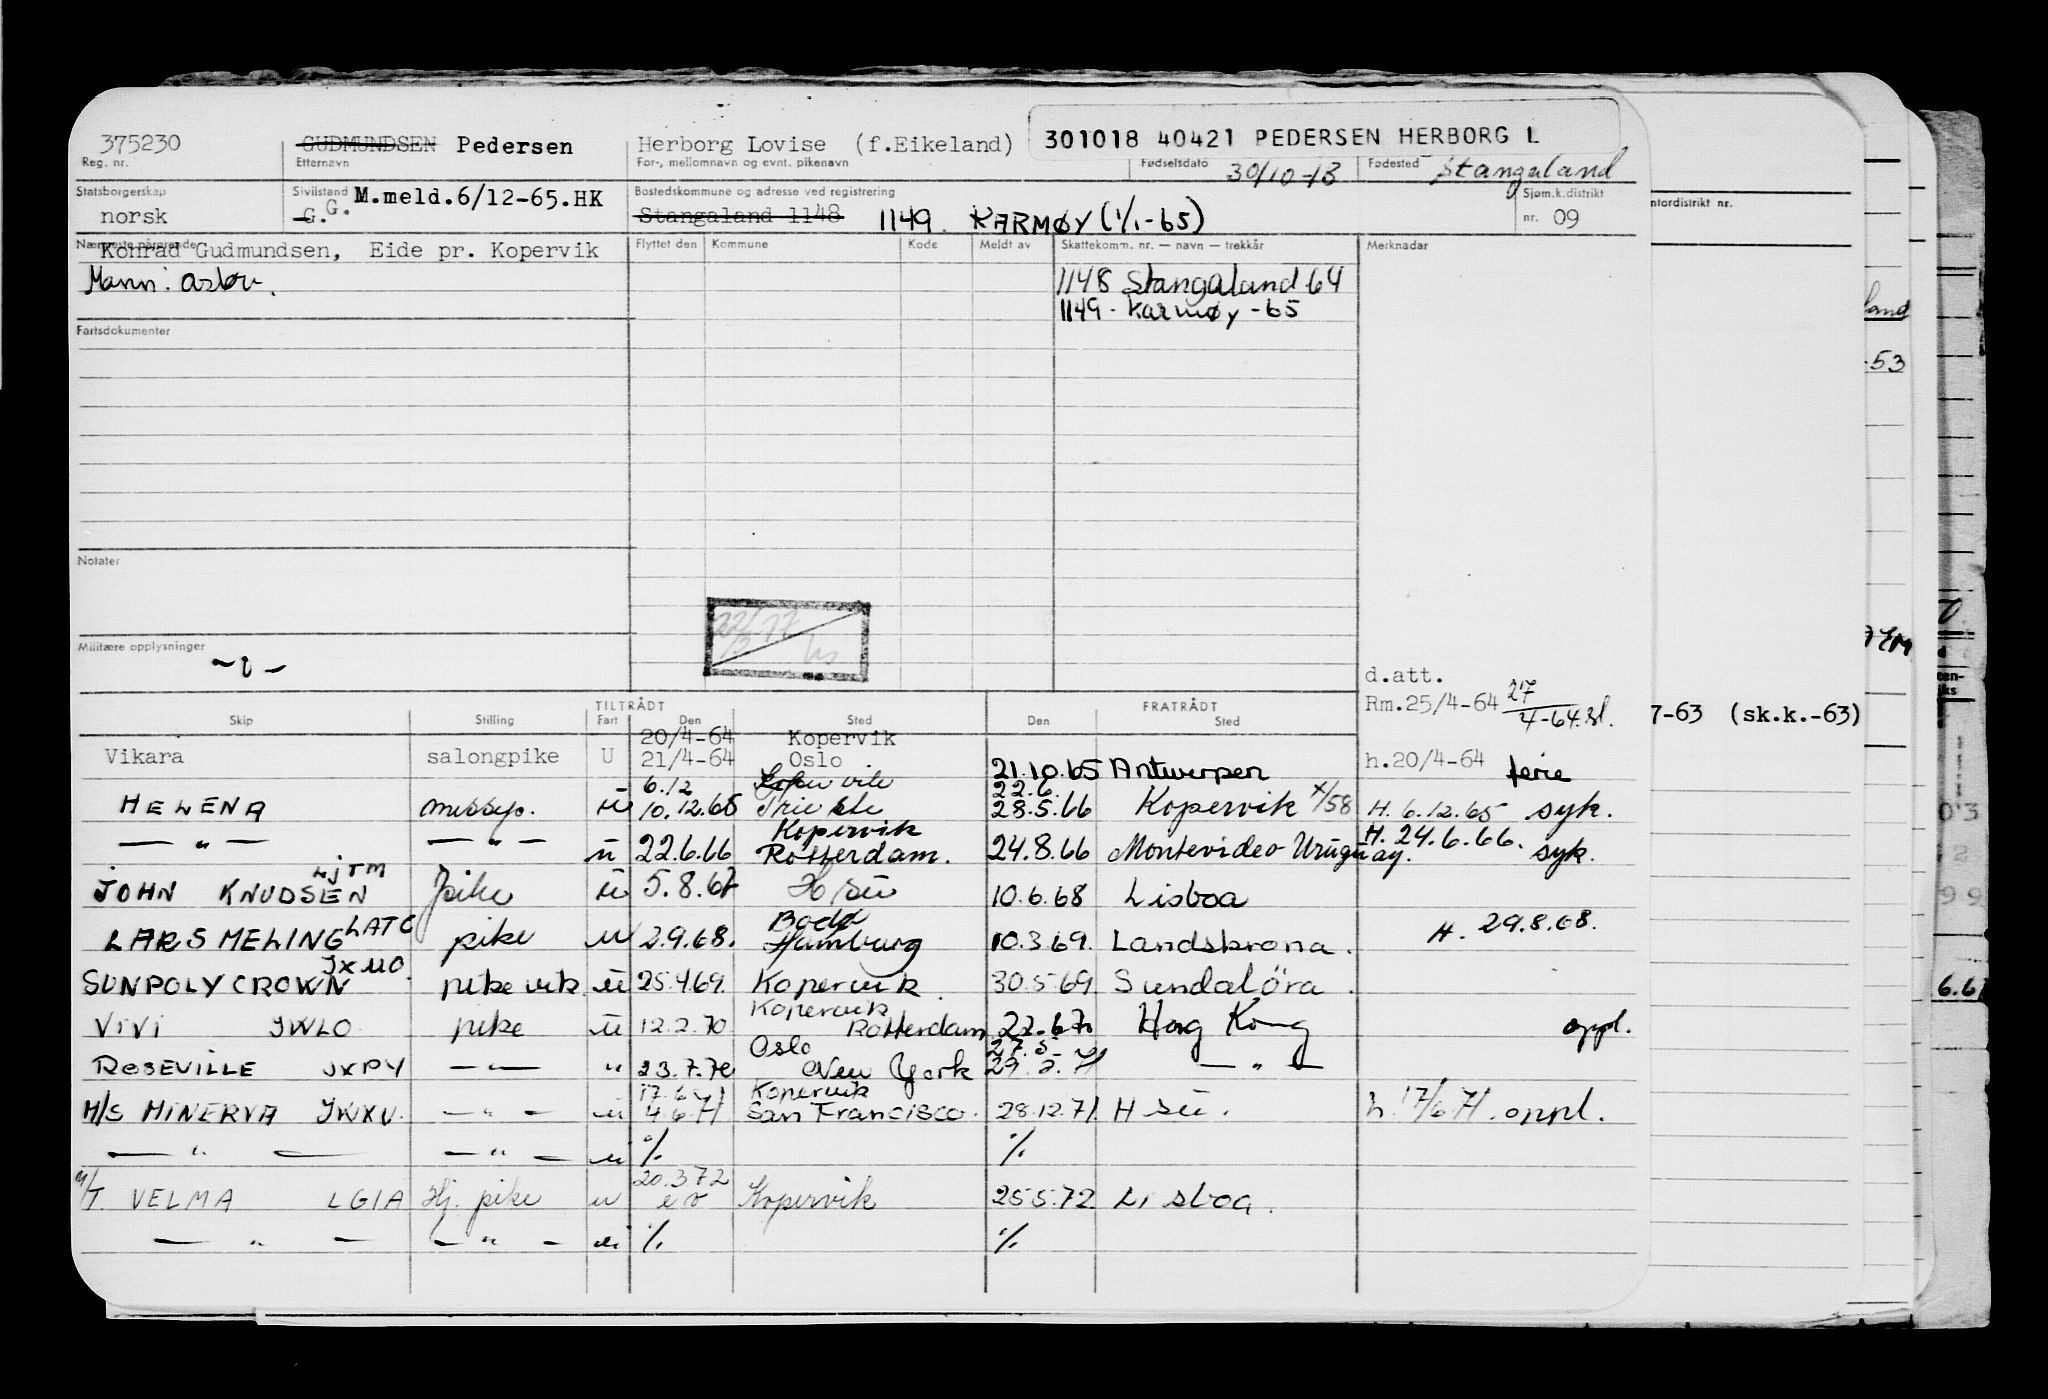 375230 GUDMUNDSEN Pedersen Herborg Lovise (f.Eikeland) 301018 40421 PEDERSEN HERBORG L
Reg. nr. Etternavn For-, mellomnavn og evnt. pikenavn Fødselsdato 30/10-18 Fødested Stangaland
Statsborgerskap Sivilstand M.meld.6/12-65.HK Bostedskommune og adresse ved registrering Sjøm.k.distrikt
norsk G. G. Stangaland 1148 1149 KARMØY (1/1-65) nr. 09
Nærmeste pårørende Flyttet den Kommune Kode Meldt av Skattekomm. nr. — navn — trekkår Merknadar
Konrad Gudmundsen, Eide pr. Kopervik
Mann: 1148 Stangaland 64
1149 - Karmøy - 65
Fartsdokumenter
Notater
Militære opplysninger
d.att.
Rm.25/4-64 27/4-64
7-63 (sk.k.-63)
TILTRÅDT FRATRÅDT
Skip Stilling Fart Den Sted Den Sted
20/4-64 Kopervik
Vikara salongpike U 21/4-64 Oslo 21.10.65 Antwerpen h.20/4-64 ferie
6.12 Kopervik 22.6
HELENA messep. u 10.12.65 Trieste 28.5.66 Kopervik x/58 H. 6.12.65 syk.
Kopervik H. 24.6.66.
— " — — " — u 22.6.66 Rotterdam. 24.8.66 Montevideo Uruguay. syk.
LJTM
JOHN KNUDSEN pike u 5.8.67 H sü 10.6.68 Lisboa
LATC Bodø
LARS MELING pike u 2.9.68. Hamburg 10.3.69. Landskrona. H. 29.8.68.
JXMO.
SUNPOLYCROWN pike vik u 25.4.69. Kopervik. 30.5.69. Sundalöra.
Kopervik
VIVI JWLO pike u 12.2.70 Rotterdam 22.6.70 Hong Kong oppl.
Oslo 27.5
ROSEVILLE JXPY — — " 23.7.70 New York 29.5.71 — " —
17.6.71 Kopervik
M/S MINERVA JWXU. — " — u 4.6.71 San Francisco. 28.12.71. H sü. h. 17/6 71. oppl.
— " — — " — u % %
20.3.72
M/T VELMA LGIA Hj. pike u e o Kopervik 25.5.72. Lisboa.
— " — — " — u % %